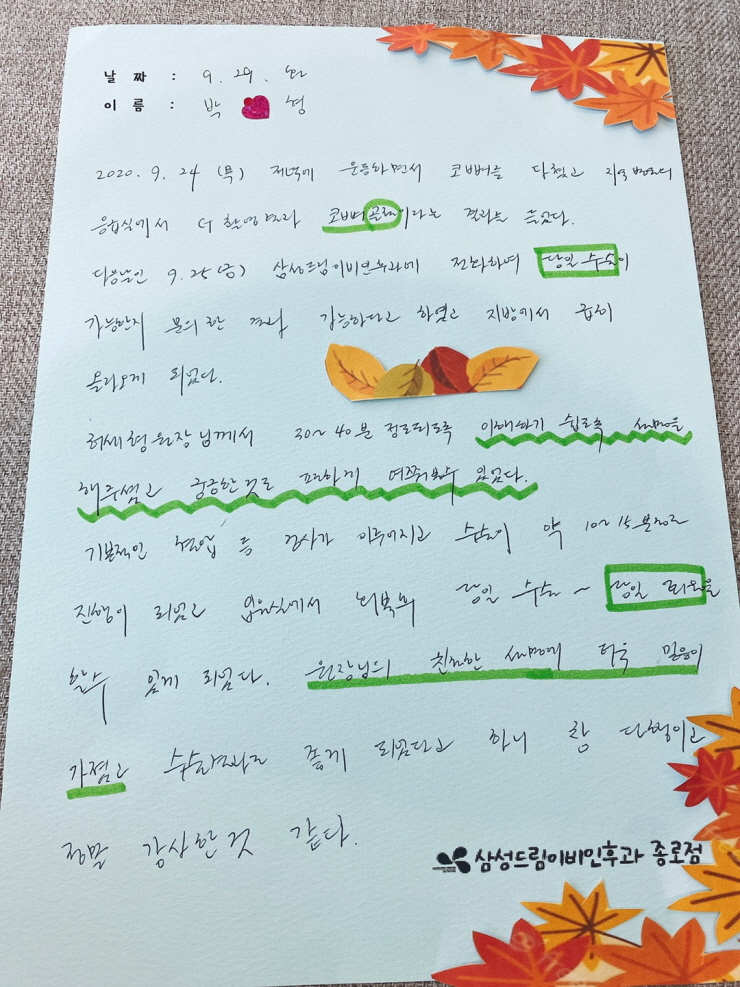 날 짜 : 9. 29. 화
이 름 : 박 형
2020. 9. 24 (목) 저녁에 운동하면서 코뼈를 다쳤고 지역 병원의
응급실에서 CT 촬영결과 코뼈 골절이라는 결과를 들었다.
다음날인 9. 25(금) 삼성드림이비인후과에 전화하여 당일 수술이
가능한지 문의한 결과 가능하다고 하였고 지방에서 급히
올라오게 되었다.
허세형원장님께서 30~40분 정도되도록 이해하기 쉽도록 설명을
해주셨고 궁금한 것도 편하게 여쭤볼수 있었다.
기본적인 혈압 등 검사가 이루어지고 수술이 약 10~15분정도
진행이 되었고 입원실에서 회복후 당일 수술 ~ 당일 퇴원을
할수 있게 되었다. 원장님의 친절한 설명에 더욱 믿음이
가졌고 수술결과도 좋게 되었다고 하니 참 다행이고
정말 감사한것 같다.
삼성드림이비인후과 종로점